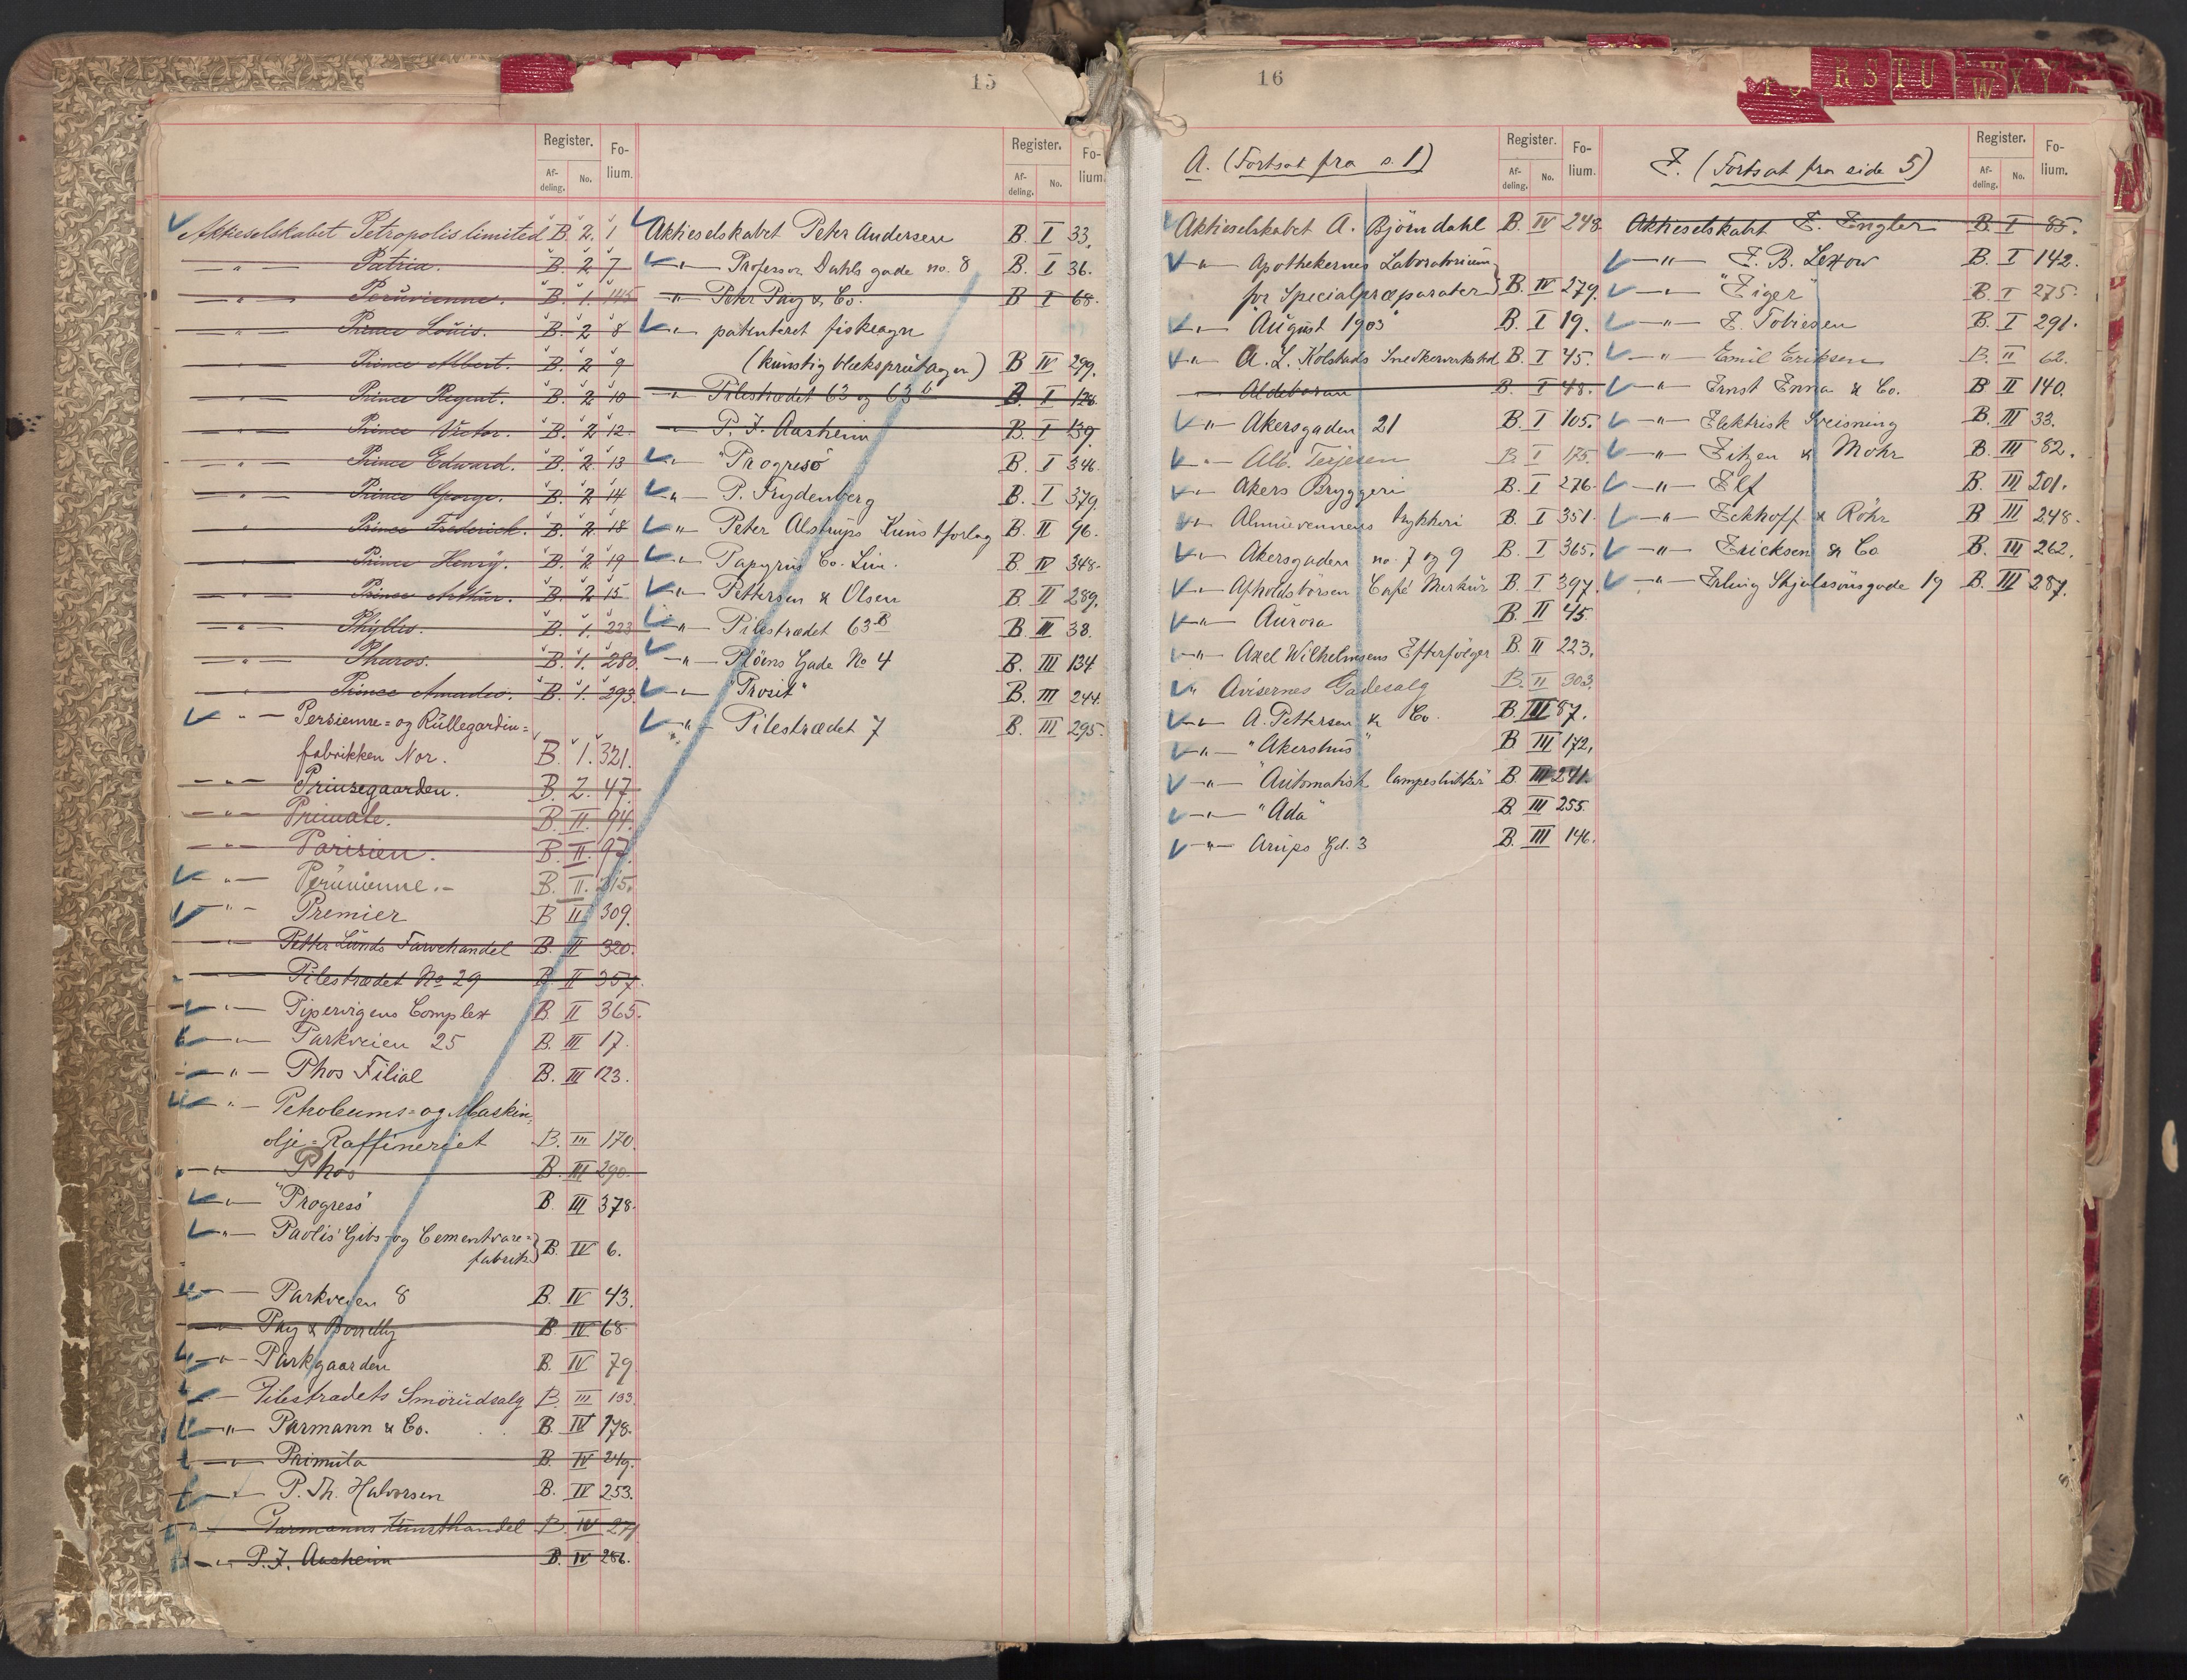 15
Register. Fo-
Af- No. lium.
deling.
Aktieselskabet Petropolis limited B. 2. 1
— " — Patria. B. 2 7
— " — Perüvienne. B. 1. 145
— " — Prince Loüis. B. 2 8
— " — Prince Albert. B. 2 9
— " — Prince Regent. B. 2 10
— " — Prince Victor. B. 2 12
— " — Prince Edward. B. 2. 13
— " — Prince George. B. 2 14
— " — Prince Frederick. B. 2. 18
— " — Prince Henry. B. 2 19
— " — Prince Arthür. B. 2 15
— " — Phyllis. B. 1. 223
— " — Pharos. B. 1. 280.
— " — Prince Amadeo. B. 1. 293.
— " — Persienne= og Rüllegardin=
fabrikken Nor. B. 1. 321.
— " — Prinsegaarden. B. 2. 47
— " — Primate. B. II. 94.
— " — Parisien. B. II. 97.
— " — Perüvienne.- B. II. 215.
— " — Premier B II 309.
— " — Petter Lünds Farvehandel B. II 320.
— " — Pilestrædet No 29 B II 357.
— " — Pipervigens Complex B II 365.
— " — Parkveien 25 B. III 17.
— " — Phos Filial B. III 123.
— " — Petroleums= og Maskin=
olje=Raffineriet B. III 170.
— " — Phos B. III 290.
— " — "Progress" B. III 378.
— " — Paolis' Gibs- og Cementvare=
fabrik B. IV 6.
— " — Parkveien 8 B. IV 43.
— " — Pay & Borrelly B. IV 68.
— " — Parkgaarden B. IV 79
— " — Pilestrædets Smörüdsalg B. III 133.
— " — Parmann & Co. B. IV 178.
— " — Primüla B. IV 249.
— " — P. Th. Halvorsen B. IV 253.
— " — Parmanns Kunsthandel B. IV 271
— " — P. J. Aasheim B. IV 286.
Register. Fo-
Af- No. lium.
deling.
Aktieselskabet Peter Andersen B. I 33.
— " — Professor Dahls gade no. 8 B. I 36.
— " — Peter Pay & Co. B I 68.
— " — patenteret fiskeagn
(künstig blæksprütagn) B IV 299.
— " — Pilestrædet 63 og 63b B. I 128.
— " — P. J. Aasheim B. I 139.
— " — "Progress" B. I 344.
— " — P. Frydenberg B. I 379.
— " — Peter Alstrüps Künstforlag B. II 96.
— " — Papyrüs Co. Lim. B. IV 348.
— " — Pettersen & Olsen B. II 289.
— " — Pilestrædet 63B B. III 38.
— " — Plöens Gade No 4 B. III 134
— " — "Prosit" B. III 244.
— " — Pilestrædet 7 B. III 295.
16
A. (Fortsat fra s. 1)
Register. Fo-
Af- No. lium.
deling.
Aktieselskabet A. Björndahl B. IV 248.
— " — Apothekernes Laboratorium
for Specialpræparater B. IV 279.
— " — "Aügüst 1903" B. I 19.
— " — A. L. Kolstads Snedkerverksted B. I 45.
— Aldebaran B. I 48.
— " — Akersgaden 21 B. I 105.
— " — Alb. Terjesen B. I 175.
— " — Akers Bryggeri B. I 276.
— " — Almüevennens trykkeri B. I 351.
— " — Akersgaden no. 7 og 9 B. I 365.
— " — Afholdsbörsen Café Merkür B. I 397.
— " — Aürora B. II 45.
— " — Axel Wilhelmsens Efterfölger B. II 223.
— " — Avisernes Gadesalg B. II 303.
— " — A. Pettersen & Co. B. III 87.
— " — "Akershüs" B III 172.
— " — "Aütomatisk lampeslükker" B III 241.
— " — "Ada" B. III 255.
— " — Arüps Gd. 3 B. III 146.
E. (Fortsat fra side 5)
Register. Fo-
Af- No. lium.
deling.
Aktieselskabet E. Engler B. I 85.
— " — E. B. Lexow B. I 142.
— " — "Eiger" B. I 275.
— " — E. Tobiesen B. I 291.
— " — Emil Eriksen B. II 62.
— " — Ernst Enna & Co. B II 140.
— " — Elektrisk Sveisning B. III 33.
— " — Eitzen & Mohr B. III 82.
— " — Elf B. III 201.
— " — Eckhoff & Röhr B III 248.
— " — Ericksen & Co B. III 262.
— " — Erling Skjalssönsgade 19 B. III 287.
R S T U W X Y